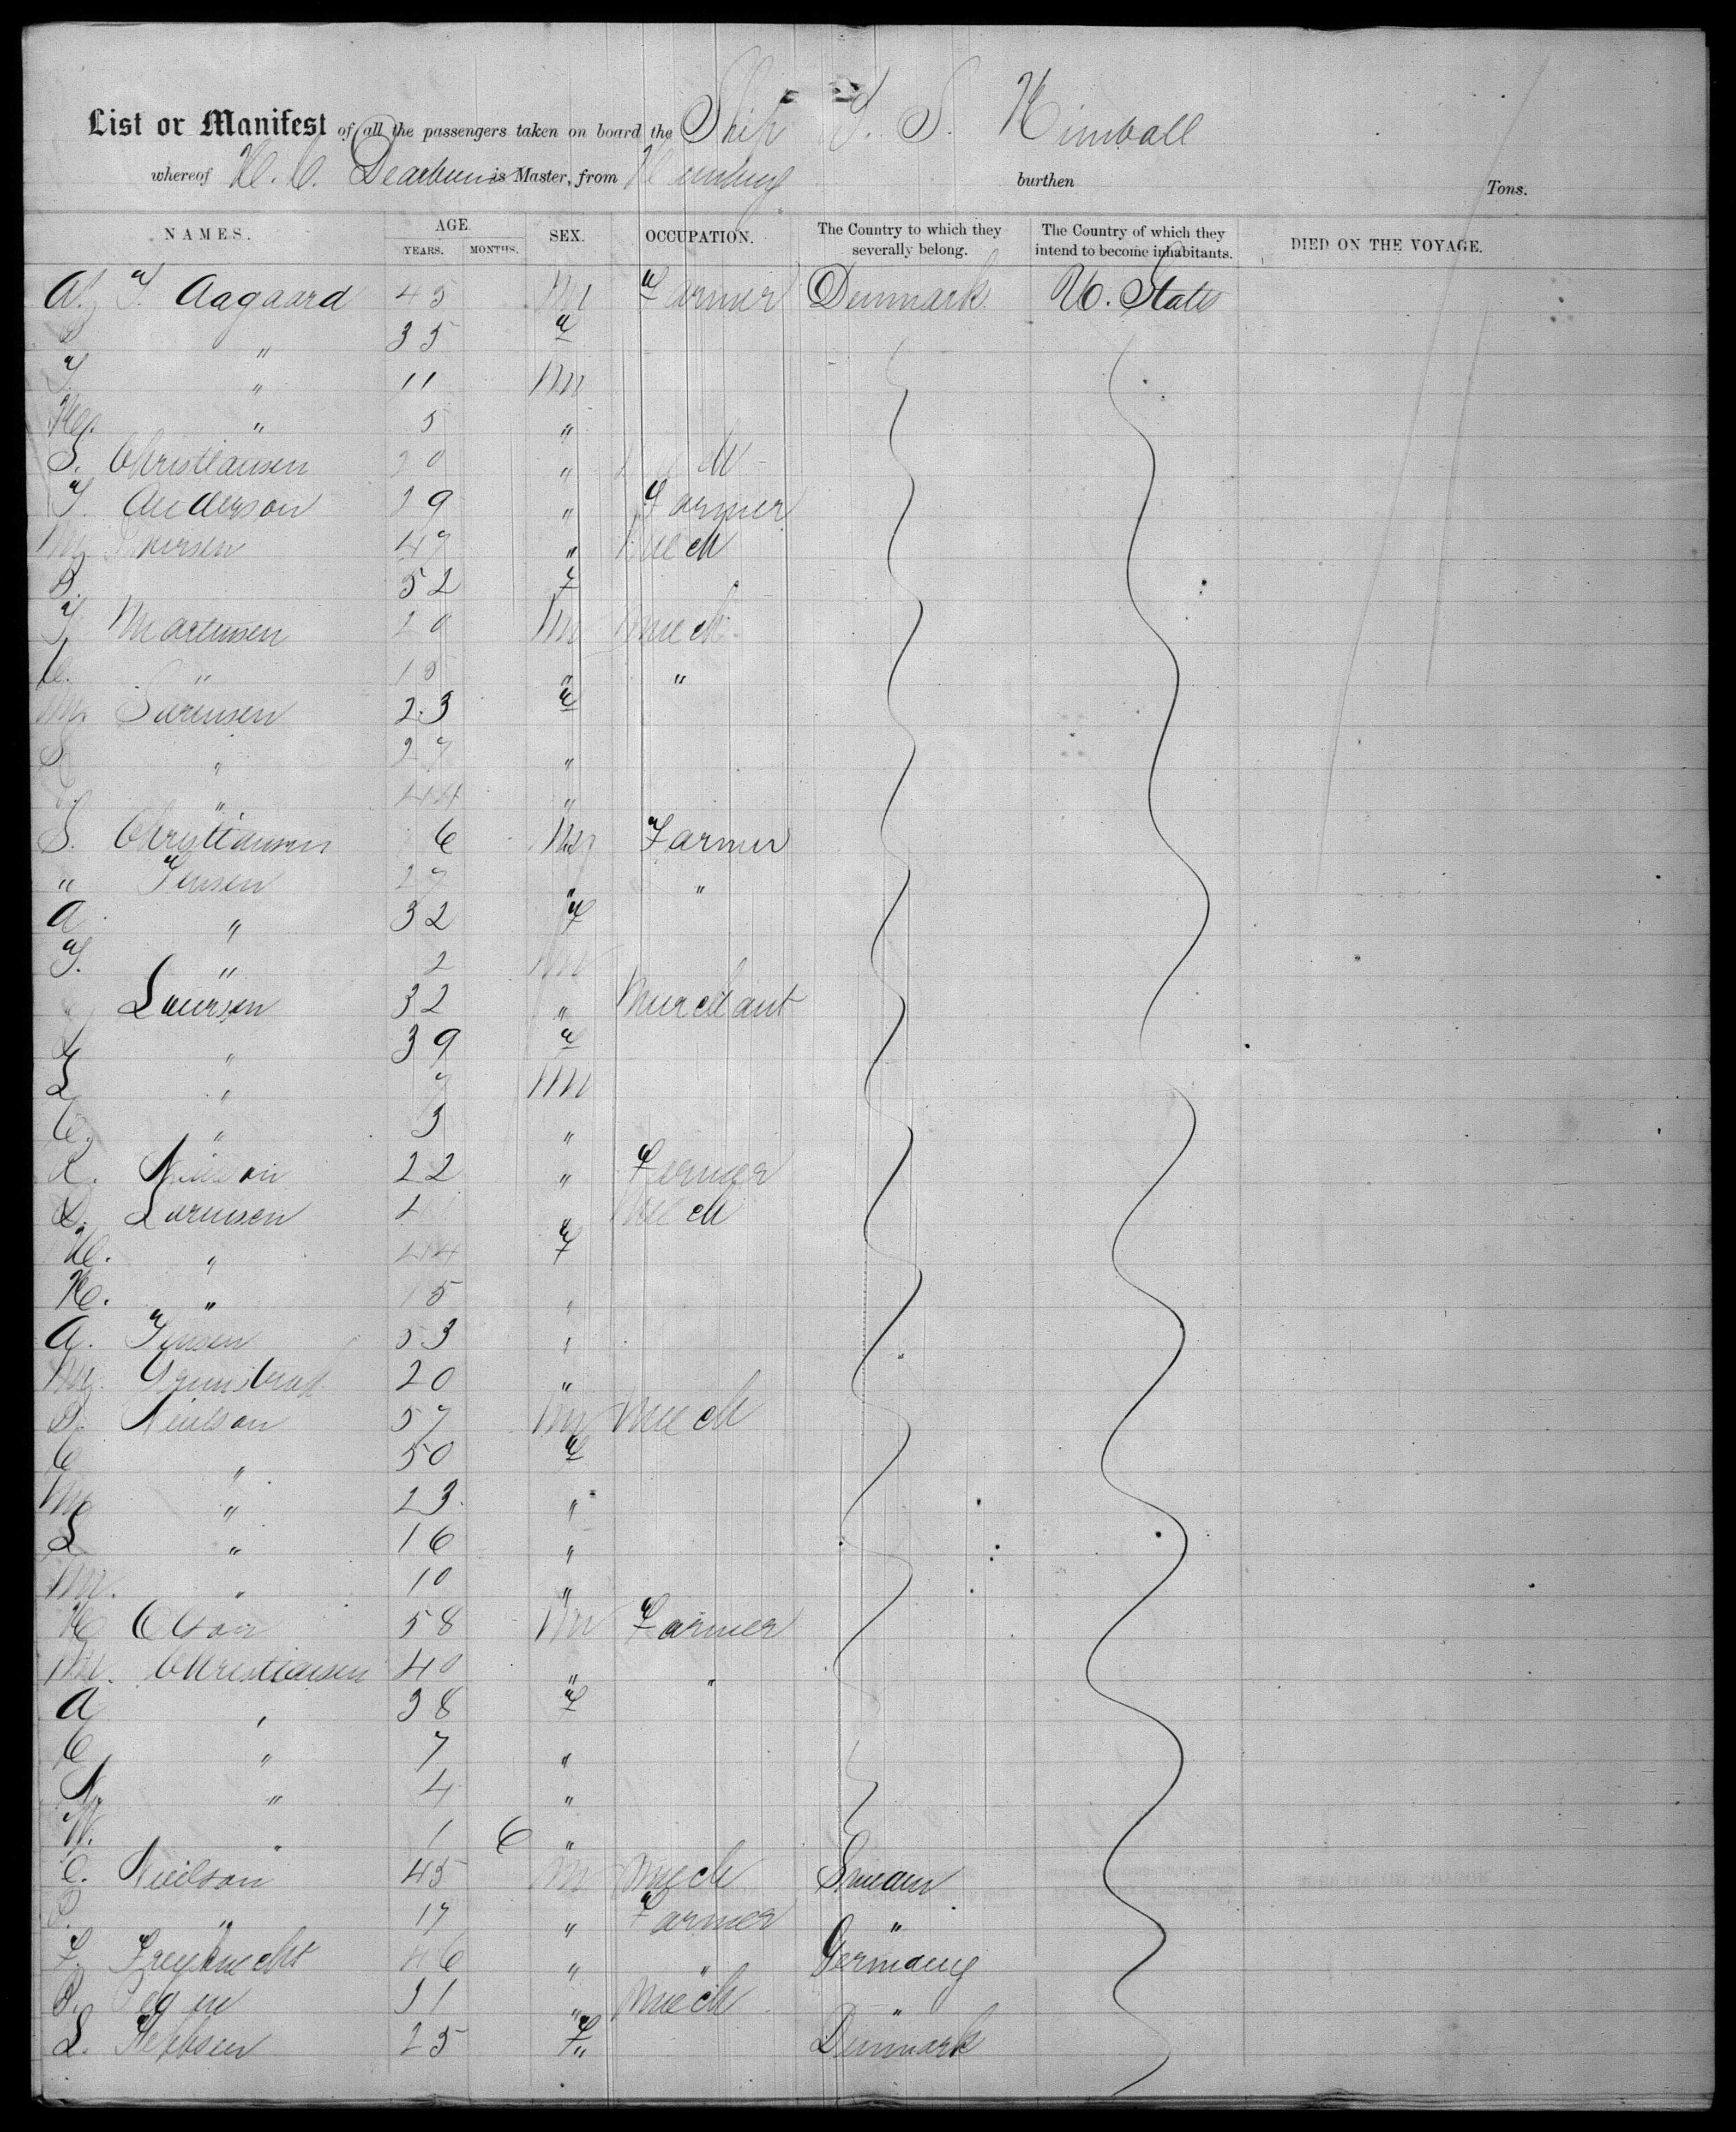 List or Manifest of all the passengers taken on board the Ship J. S. Kimball
whereof H. C. Dearborn is Master, from Hamburg burthen Tons.
NAMES. AGE. SEX. OCCUPATION. The Country to which they severally belong. The Country of which they intend to become inhabitants. DIED ON THE VOYAGE.
YEARS. MONTHS.
A. J. Aagaard 45 M Farmer Denmark U. States
" 35 F
J. " 11 M
" 5 "
S. Christiansen 20 "
J. Anderson 29 " Farmer
47 " Mech
B. 52 F
J. Martensen 20 M Mech
" 15 " "
M. Sörensen 23 F
" 27 "
" 44 "
S. Christiansen 6 M Farmer
" Jensen 27 " "
A. " 32 F
J. " 2 M
Laursen 32 " Merchant
" 39 F
L " 7 M
C. " 3 "
Neilson 22 " Farmer
Lorensen Mech
H. " 44 F
H. " 15 "
A. Jensen 53 "
M. 20 "
Neilson 57 M Mech
C " 50 F
M " 23 "
L " 16 "
M. " 10 "
H Olson 58 M Farmer
M. Christiansen 40 " "
A " 38 F
C " 7 "
N. " 4 "
W. " 1 6 "
C. Neilson 45 M Mech Sweden
" 17 " Farmer "
F. Freyknecht 46 " " Germany
31 " Mech "
L. Jebbsen 25 F" Denmark